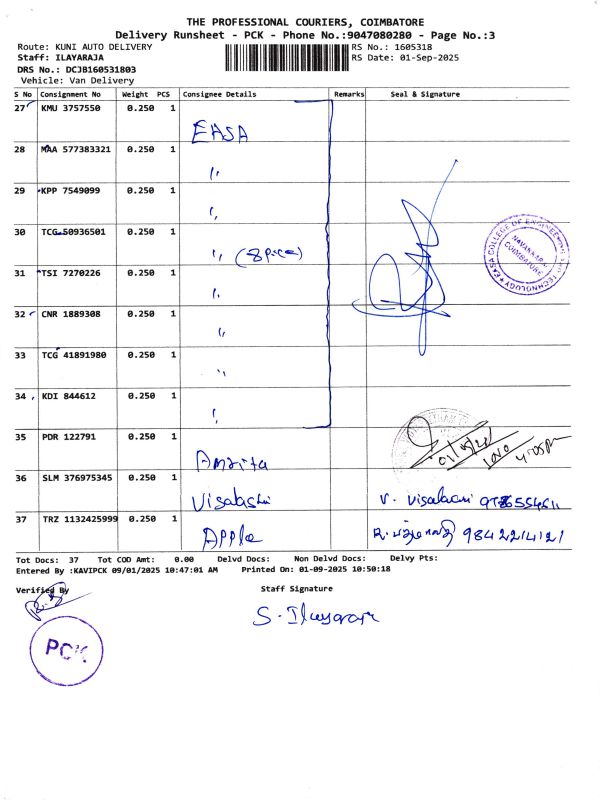 THE PROFESSIONAL COURIERS, COIMBATORE
Delivery Runsheet - PCK - Phone No.:9047080280 - Page No.:3
Route: KUNI AUTO DELIVERY
RS No.: 1605318
Staff: ILAYARAJA
RS Date: 01-Sep-2025
DRS No.: DCJB160531803
Vehicle: Van Delivery
S No Consignment No Weight PCS Consignee Details Remarks Seal & Signature
27 KMU 3757550 0.250 1 EASA
28 MAA 577383321 0.250 1 ,,
29 KPP 7549099 0.250 1 ,,
30 TCG 50936501 0.250 1 ,,
31 TSI 7270226 0.250 1 ,,
32 CNR 1889308 0.250 1 ,,
33 TCG 41891980 0.250 1 ,,
34 KDI 844612 0.250 1 ,,
EASA COLLEGE OF ENGINEERING AND TECHNOLOGY
NAVAKKARAI
COIMBATORE
35 PDR 122791 0.250 1 Amrita
4:05pm
36 SLM 376975345 0.250 1 Visalashi V. Visalachi
37 TRZ 1132425999 0.250 1 Apple 9842214121
Tot Docs: 37 Tot COD Amt: 0.00 Delvd Docs: Non Delvd Docs: Delvy Pts:
Entered By :KAVIPCK 09/01/2025 10:47:01 AM Printed On: 01-09-2025 10:50:18
Verified By
Staff Signature
S. Ilayaraja
PCK